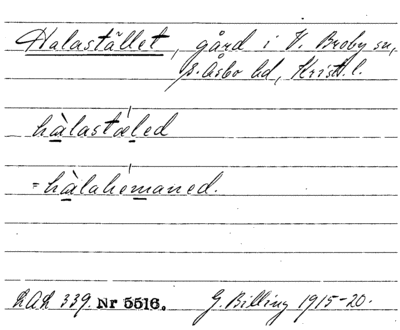 Halastället, gård i V. Broby sn,
S. Åsbo hd, Krist. l.
hàlastæled
= hàlahemaned.
LAL 339. Nr 5516. G. Billing 1915-20.